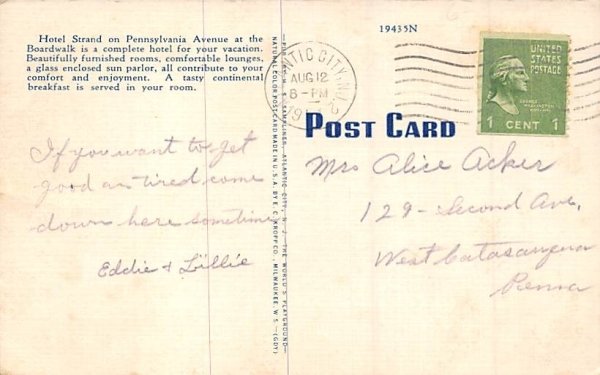 Hotel Strand on Pennsylvania Avenue at the
Boardwalk is a complete hotel for your vacation.
Beautifully furnished rooms, comfortable lounges,
a glass enclosed sun parlor, all contribute to your
comfort and enjoyment. A tasty continental
breakfast is served in your room.
If you want to get
good an tired come
down here sometime
Eddie & Lillie
ATLANTIC CITY, N.J. THE WORLD'S PLAYGROUND
NATURAL COLOR POST CARD MADE IN U.S.A. BY E. C. KROPP CO., MILWAUKEE, WIS.
19435N
NTIC CITY, N.J.
AUG 12
8-PM
UNITED
STATES
POSTAGE
GEORGE
WASHINGTON
1 CENT 1
POST CARD
Mrs Alice Acker
129-Second Ave,
West Catasauqua
Penna